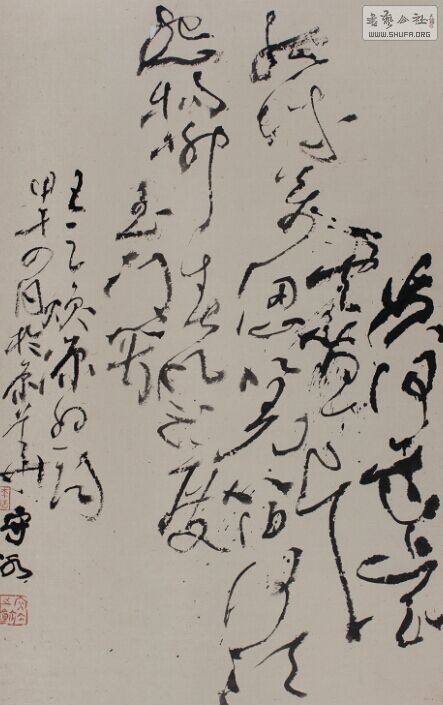 書藝公社
WWW.SHUFA.ORG
黄河遠上白
雲間一片
孤城万仞山羌笛何須
怨楊柳春风不度
玉门關
王之涣凉州詞
甲午四月於京華